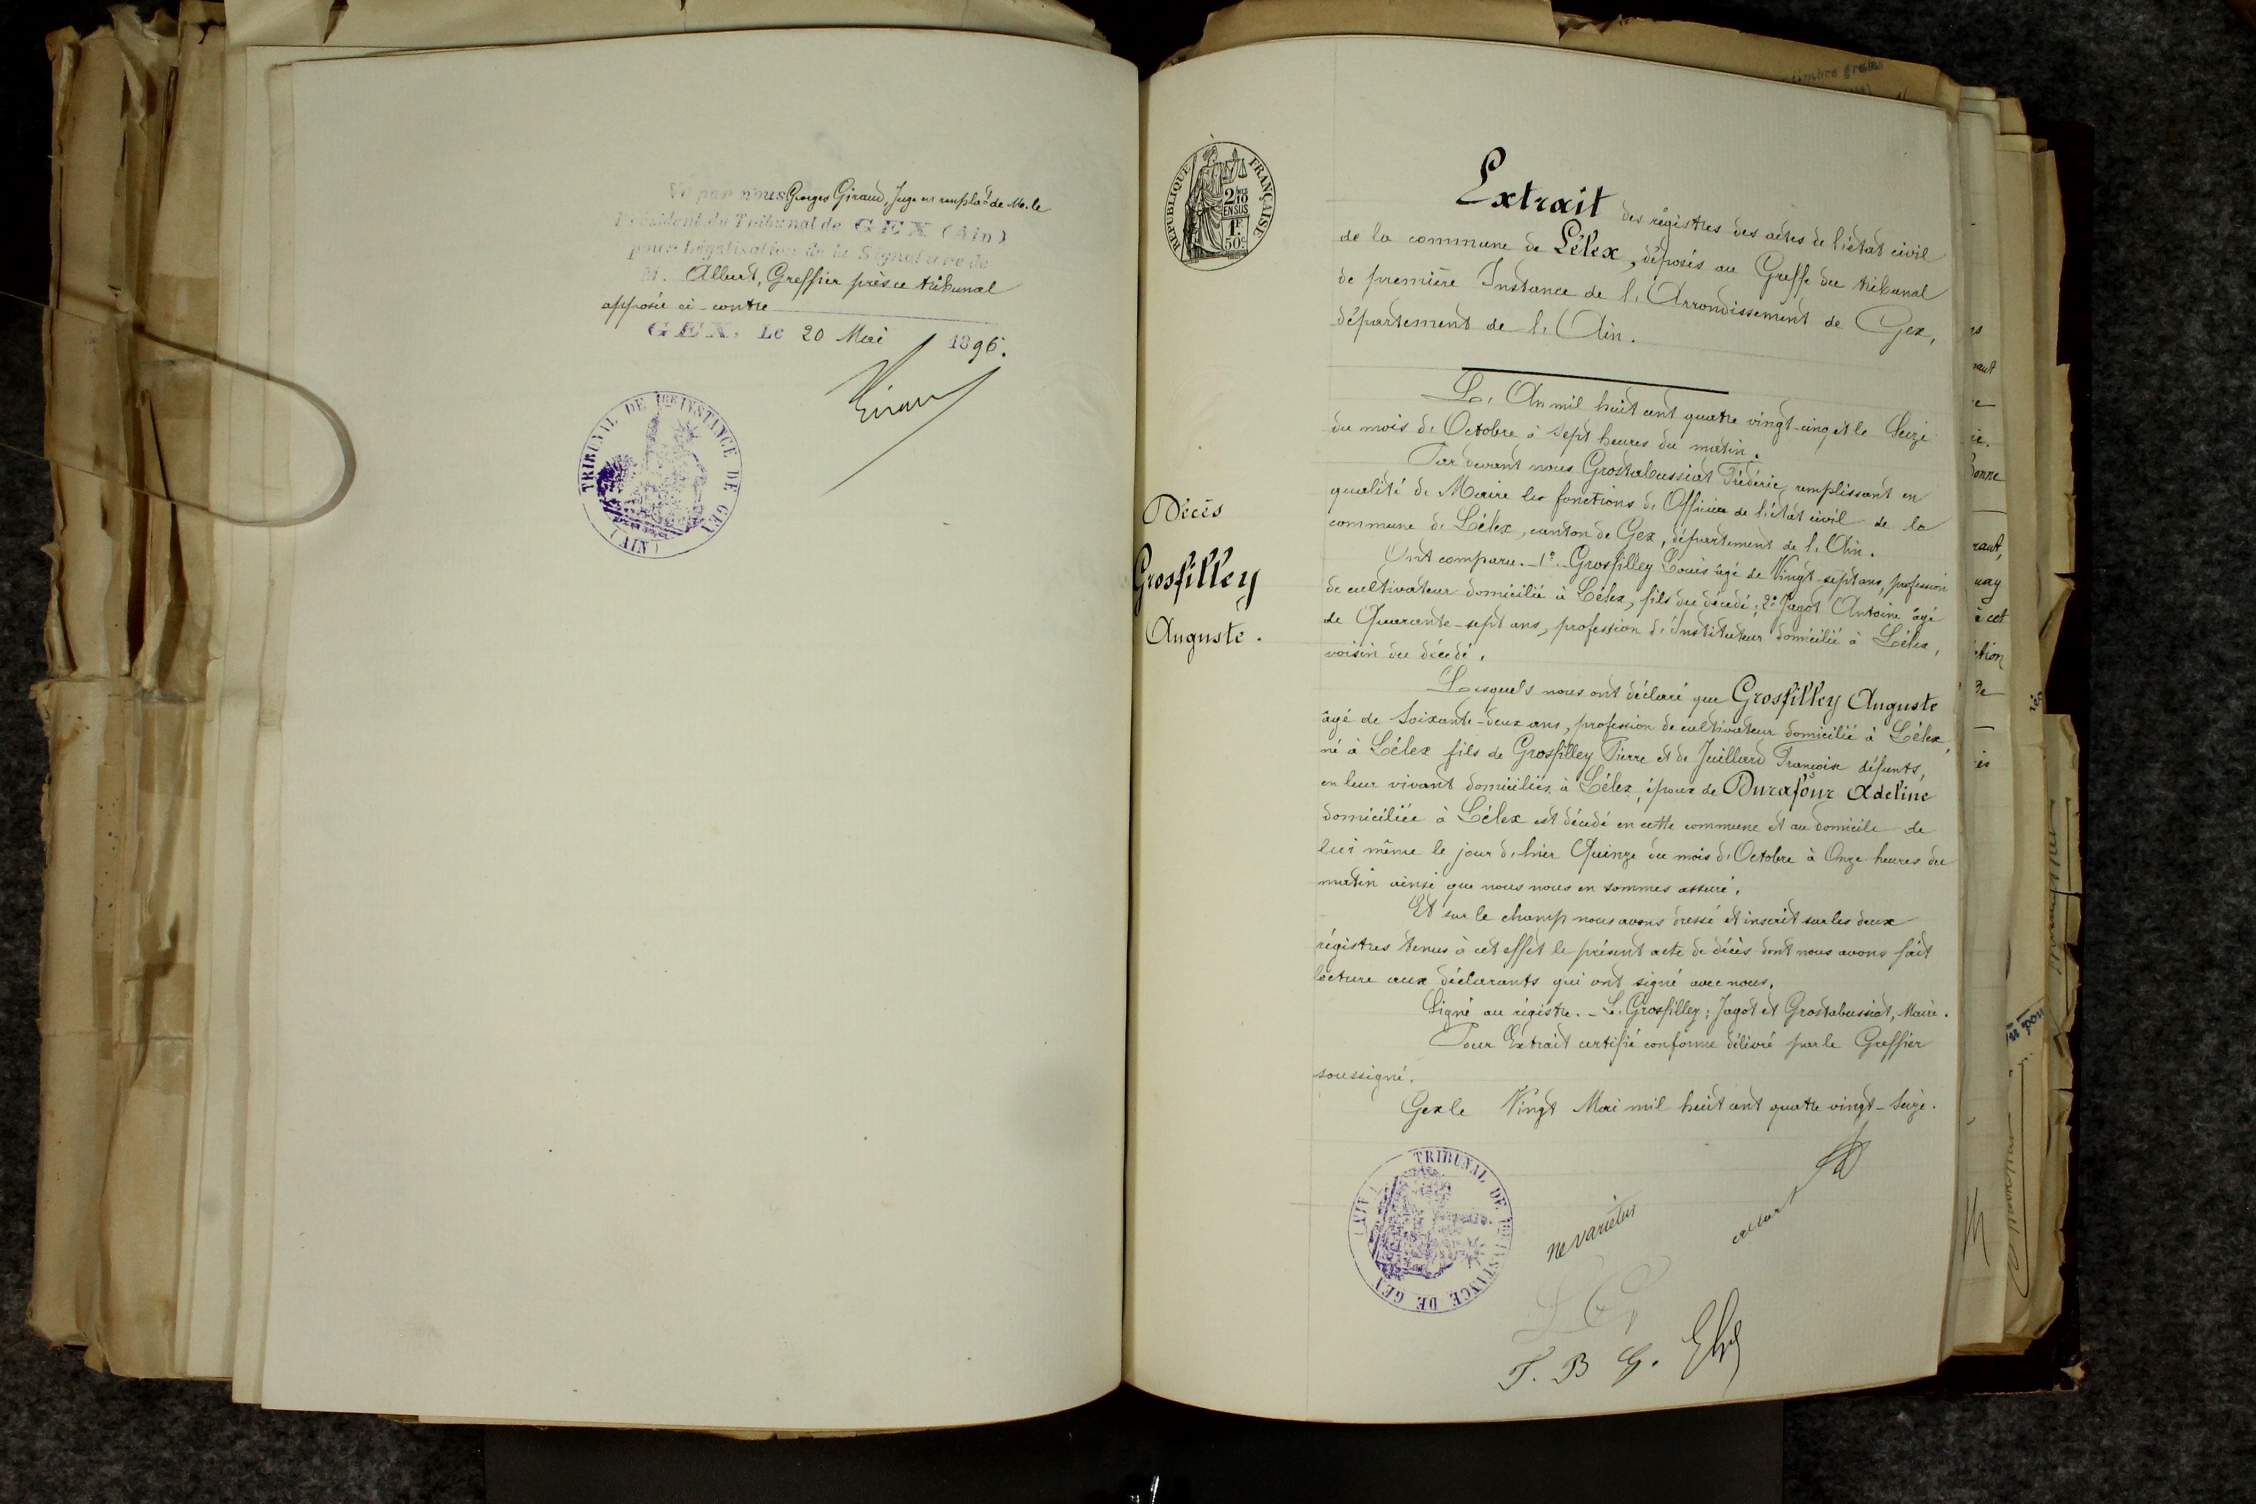 Vu par nous Georges Giraud, Juge en remplact de M. le
Président du Tribunal de GEX (Ain)
pour Légalisation de la Signature de
M. Allard, Greffier près ce tribunal
apposée ci-contre
GEX, Le 20 Mai 1896.
Giraud
TRIBUNAL DE 1RE INSTANCE DE GEX
(AIN)
RÉPUBLIQUE FRANÇAISE
2/10
EN SUS
1F
50c
Extrait des régistres des actes de l'état civil
de la commune de Lélex, déposés au Greffe du tribunal
de première Instance de l'Arrondissement de Gex,
département de l'Ain.
L'An mil huit cent quatre vingt-cinq et le Seize
du mois d'Octobre à sept heures du matin.
Par devant nous Grostabussiat Frédéric, remplissant en
qualité de Maire les fonctions d'Officier de l'état civil de la
commune de Lélex, canton de Gex, département de l'Ain.
Ont comparu. - 1º. Grosfilley Louis âgé de Vingt-sept ans, profession
de cultivateur domicilié à Lélex, fils du décédé; 2º Jagot Antoine âgé
de Quarante-sept ans, profession d'Instituteur domicilié à Lélex,
voisin du décédé.
Lesquels nous ont déclaré que Grosfilley Auguste
âgé de Soixante-deux ans, profession de cultivateur domicilié à Lélex,
né à Lélex fils de Grosfilley Pierre et de Juillard Françoise défunts,
en leur vivant domiciliés à Lélex, époux de Durafour Adeline
domiciliée à Lélex est décédé en cette commune et au domicile de
lui même le jour d'hier Quinze du mois d'Octobre à Onze heures du
matin ainsi que nous nous en sommes assuré.
Et sur le champ nous avons dressé et inscrit sur les deux
régistres tenus à cet effet le présent acte de décès dont nous avons fait
lecture aux déclarants qui ont signé avec nous.
Signé au régistre. - L. Grosfilley; Jagot et Grostabussiat, Maire.
Pour Extrait certifié conforme délivré par le Greffier
soussigné.
Gex le Vingt Mai mil huit cent quatre vingt-Seize.
Décès
Grosfilley
Auguste.
TRIBUNAL DE 1RE INSTANCE DE GEX
(AIN)
ne varietur
T. B G.